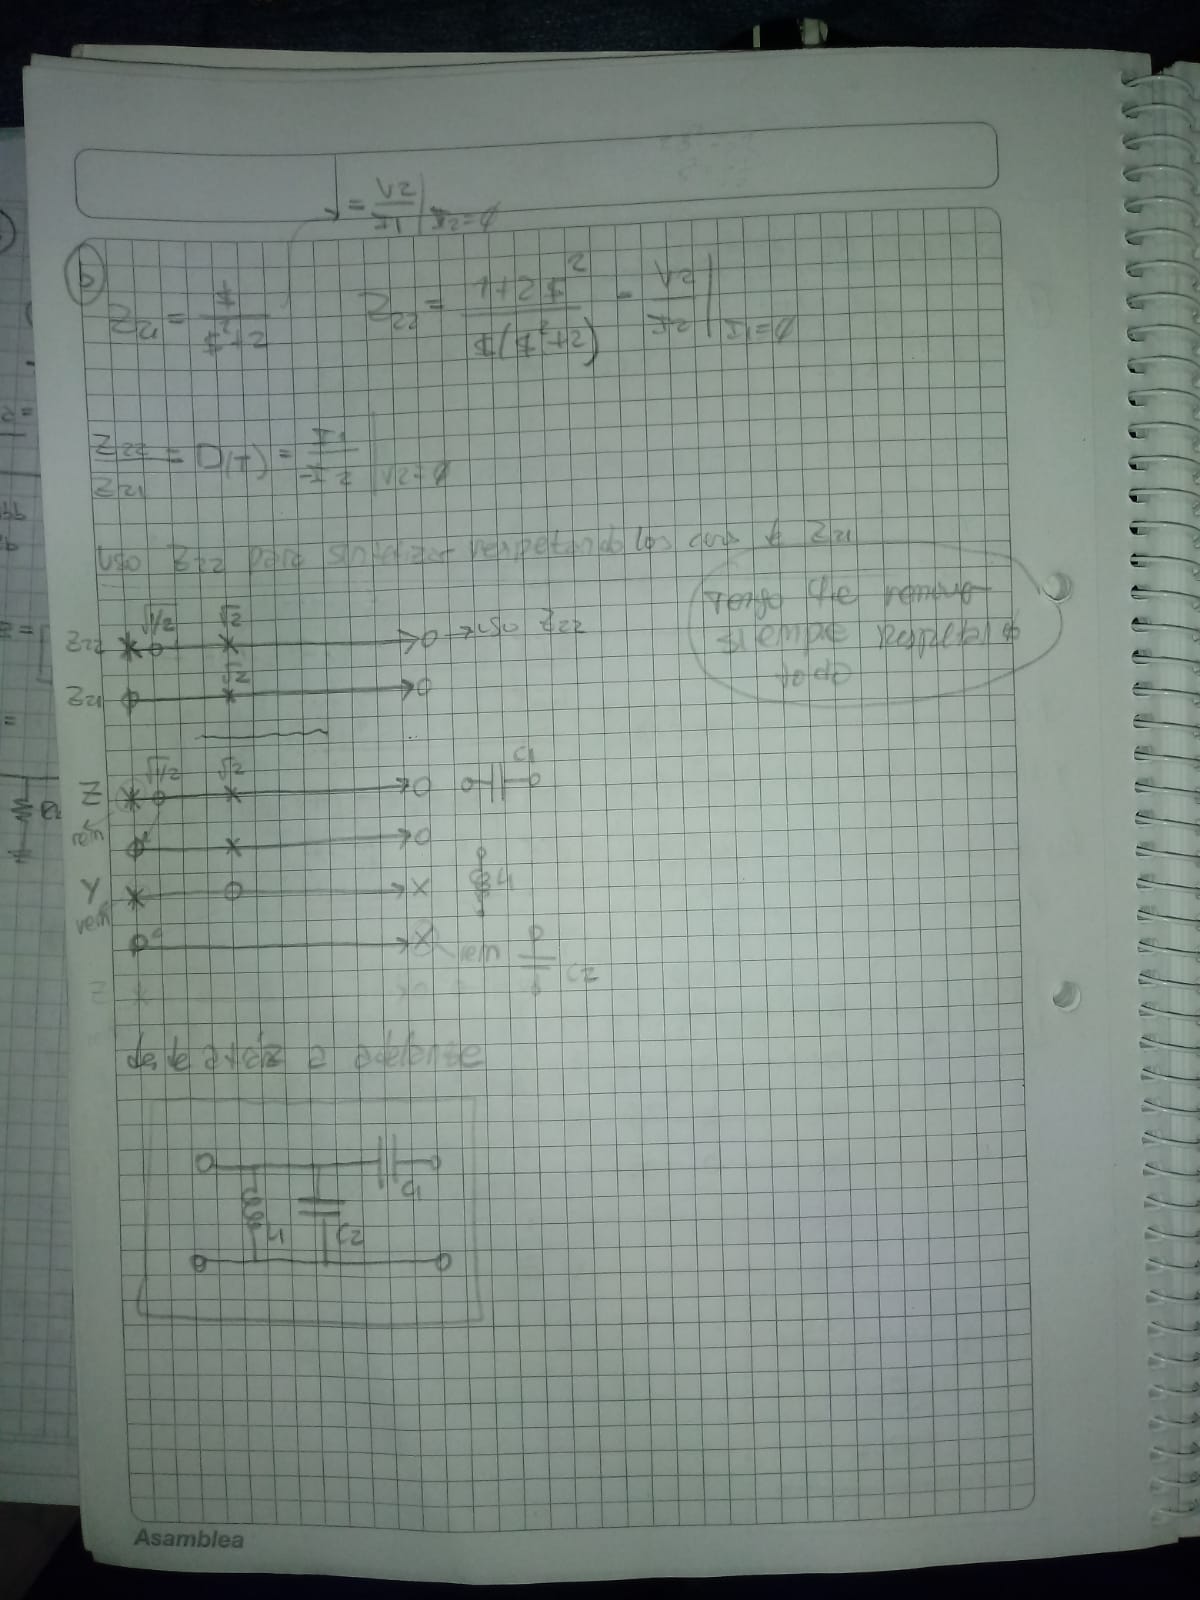 = V2/I1 | I2=0
b
Z21 = $/($²+2)    Z22 = (1+2$²)/($($²+2)) = V2/I2 | I1=0
Z22/Z21 = D(I) = I1/-I2 | V2=0
uso Z22 para sintetizar respetando los ceros de Z21
tengo que remover
siempre respetando
todo
√1/2 √2
Z22 → uso Z22
√2
Z21
√1/2 √2
Z C1
rem
Y L1
rem
rem C2
Z
desde atrás a adelante
C1
L1 C2
Asamblea